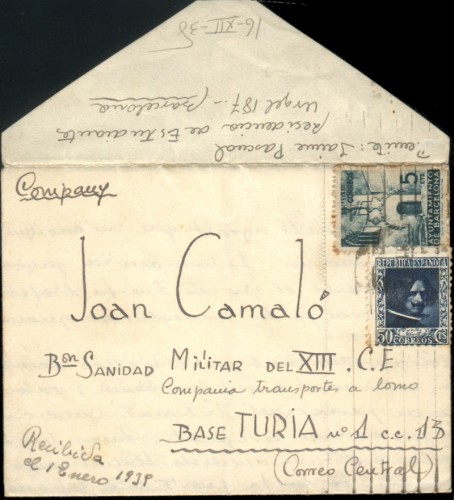 16-XII-38
Remite: Jaime Pascual
Residencia de Estudiantes
Urgel 187.- Barcelona
Company
CORREOS
5
CTS
AYUNTAMIENTO
DE BARCELONA
REPUBLICA ESPAÑOLA
50 CORREOS CS
Joan Camaló
Bon SANIDAD MILITAR DEL XIII. C.E
Compania transportes a lomo
BASE TURIA nº 1 c.c. 13
(Correo Central)
Recibida
el 1 Enero 1939